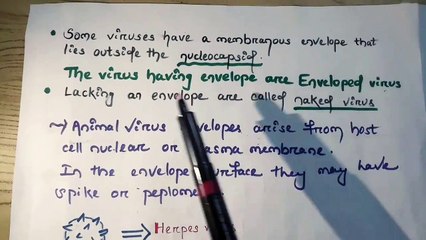 Some viruses have a membranous envelope that
lies outside the nucleocapsid.
The virus having envelope are Enveloped virus
Lacking an envelope are called naked virus
Animal virus envelopes arise from host
cell nuclear or plasma membrane.
In the envelope surface they may have
spike or
Herpes